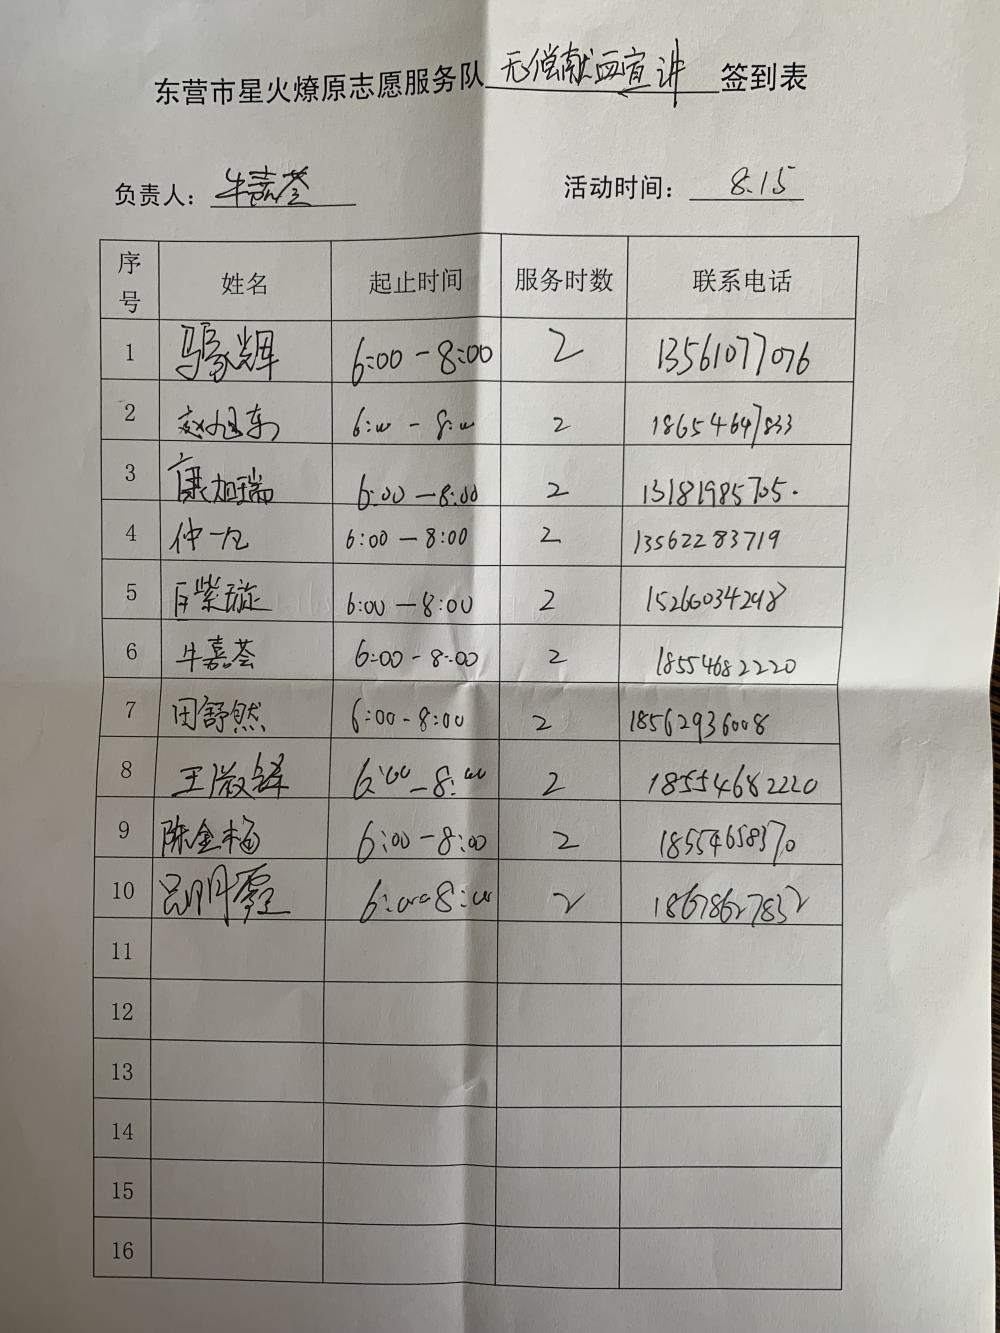 东营市星火燎原志愿服务队无偿献血宣讲签到表
负责人：牛嘉荟 活动时间：8.15
序号 姓名 起止时间 服务时数 联系电话
1 6:00-8:00 2 13561077076
2 赵旭东 6:00-8:00 2 18654647833
3 康旭瑞 6:00-8:00 2 13181985705.
4 仲一凡 6:00-8:00 2 13562283719
5 紫璇 6:00-8:00 2 15266034298
6 牛嘉荟 6:00-8:00 2 18554682220
7 田舒然 6:00-8:00 2 18562936008
8 王 6:00-8:00 2 18554682220
9 陈金梅 6:00-8:00 2 18554658370
10 吕明霞 6:00-8:00 2 18678627832
11
12
13
14
15
16